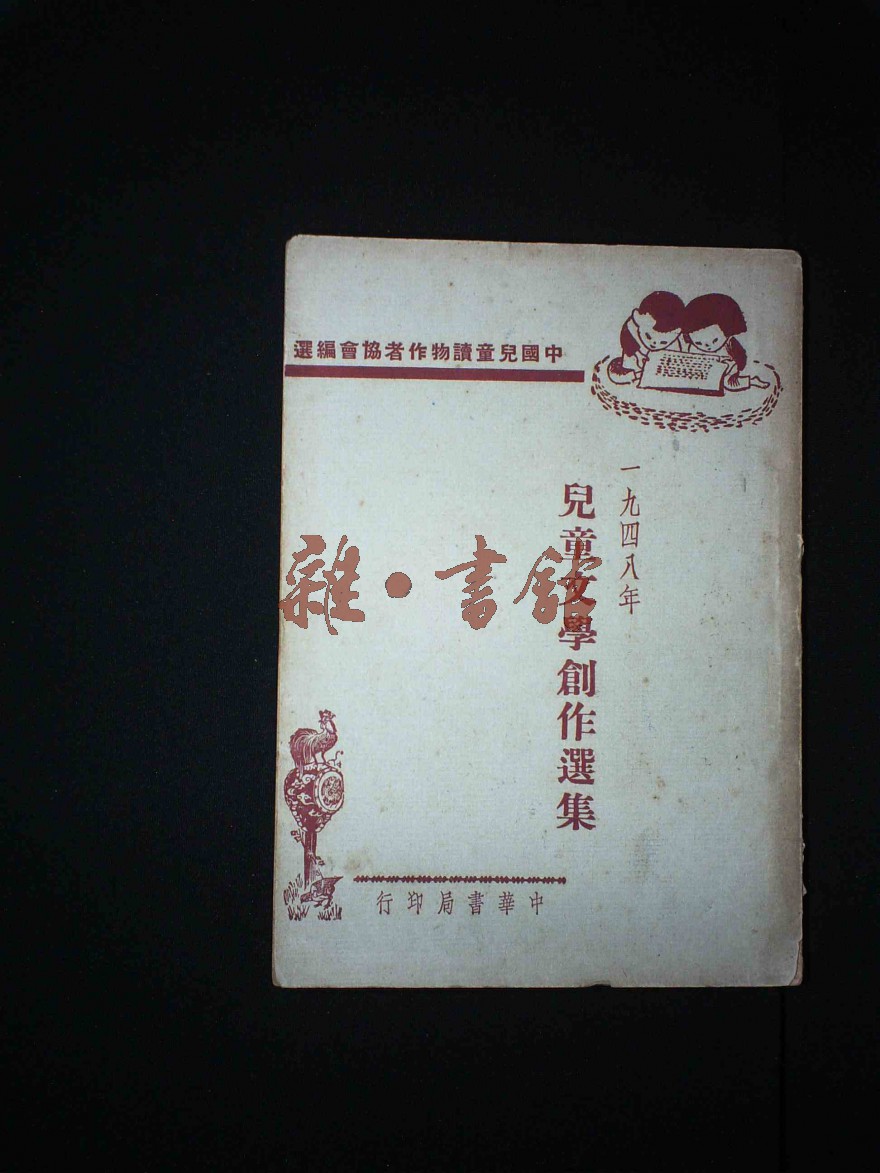 中國兒童讀物作者協會編選
一九四八年
兒童文學創作選集
雜·書館
中華書局印行